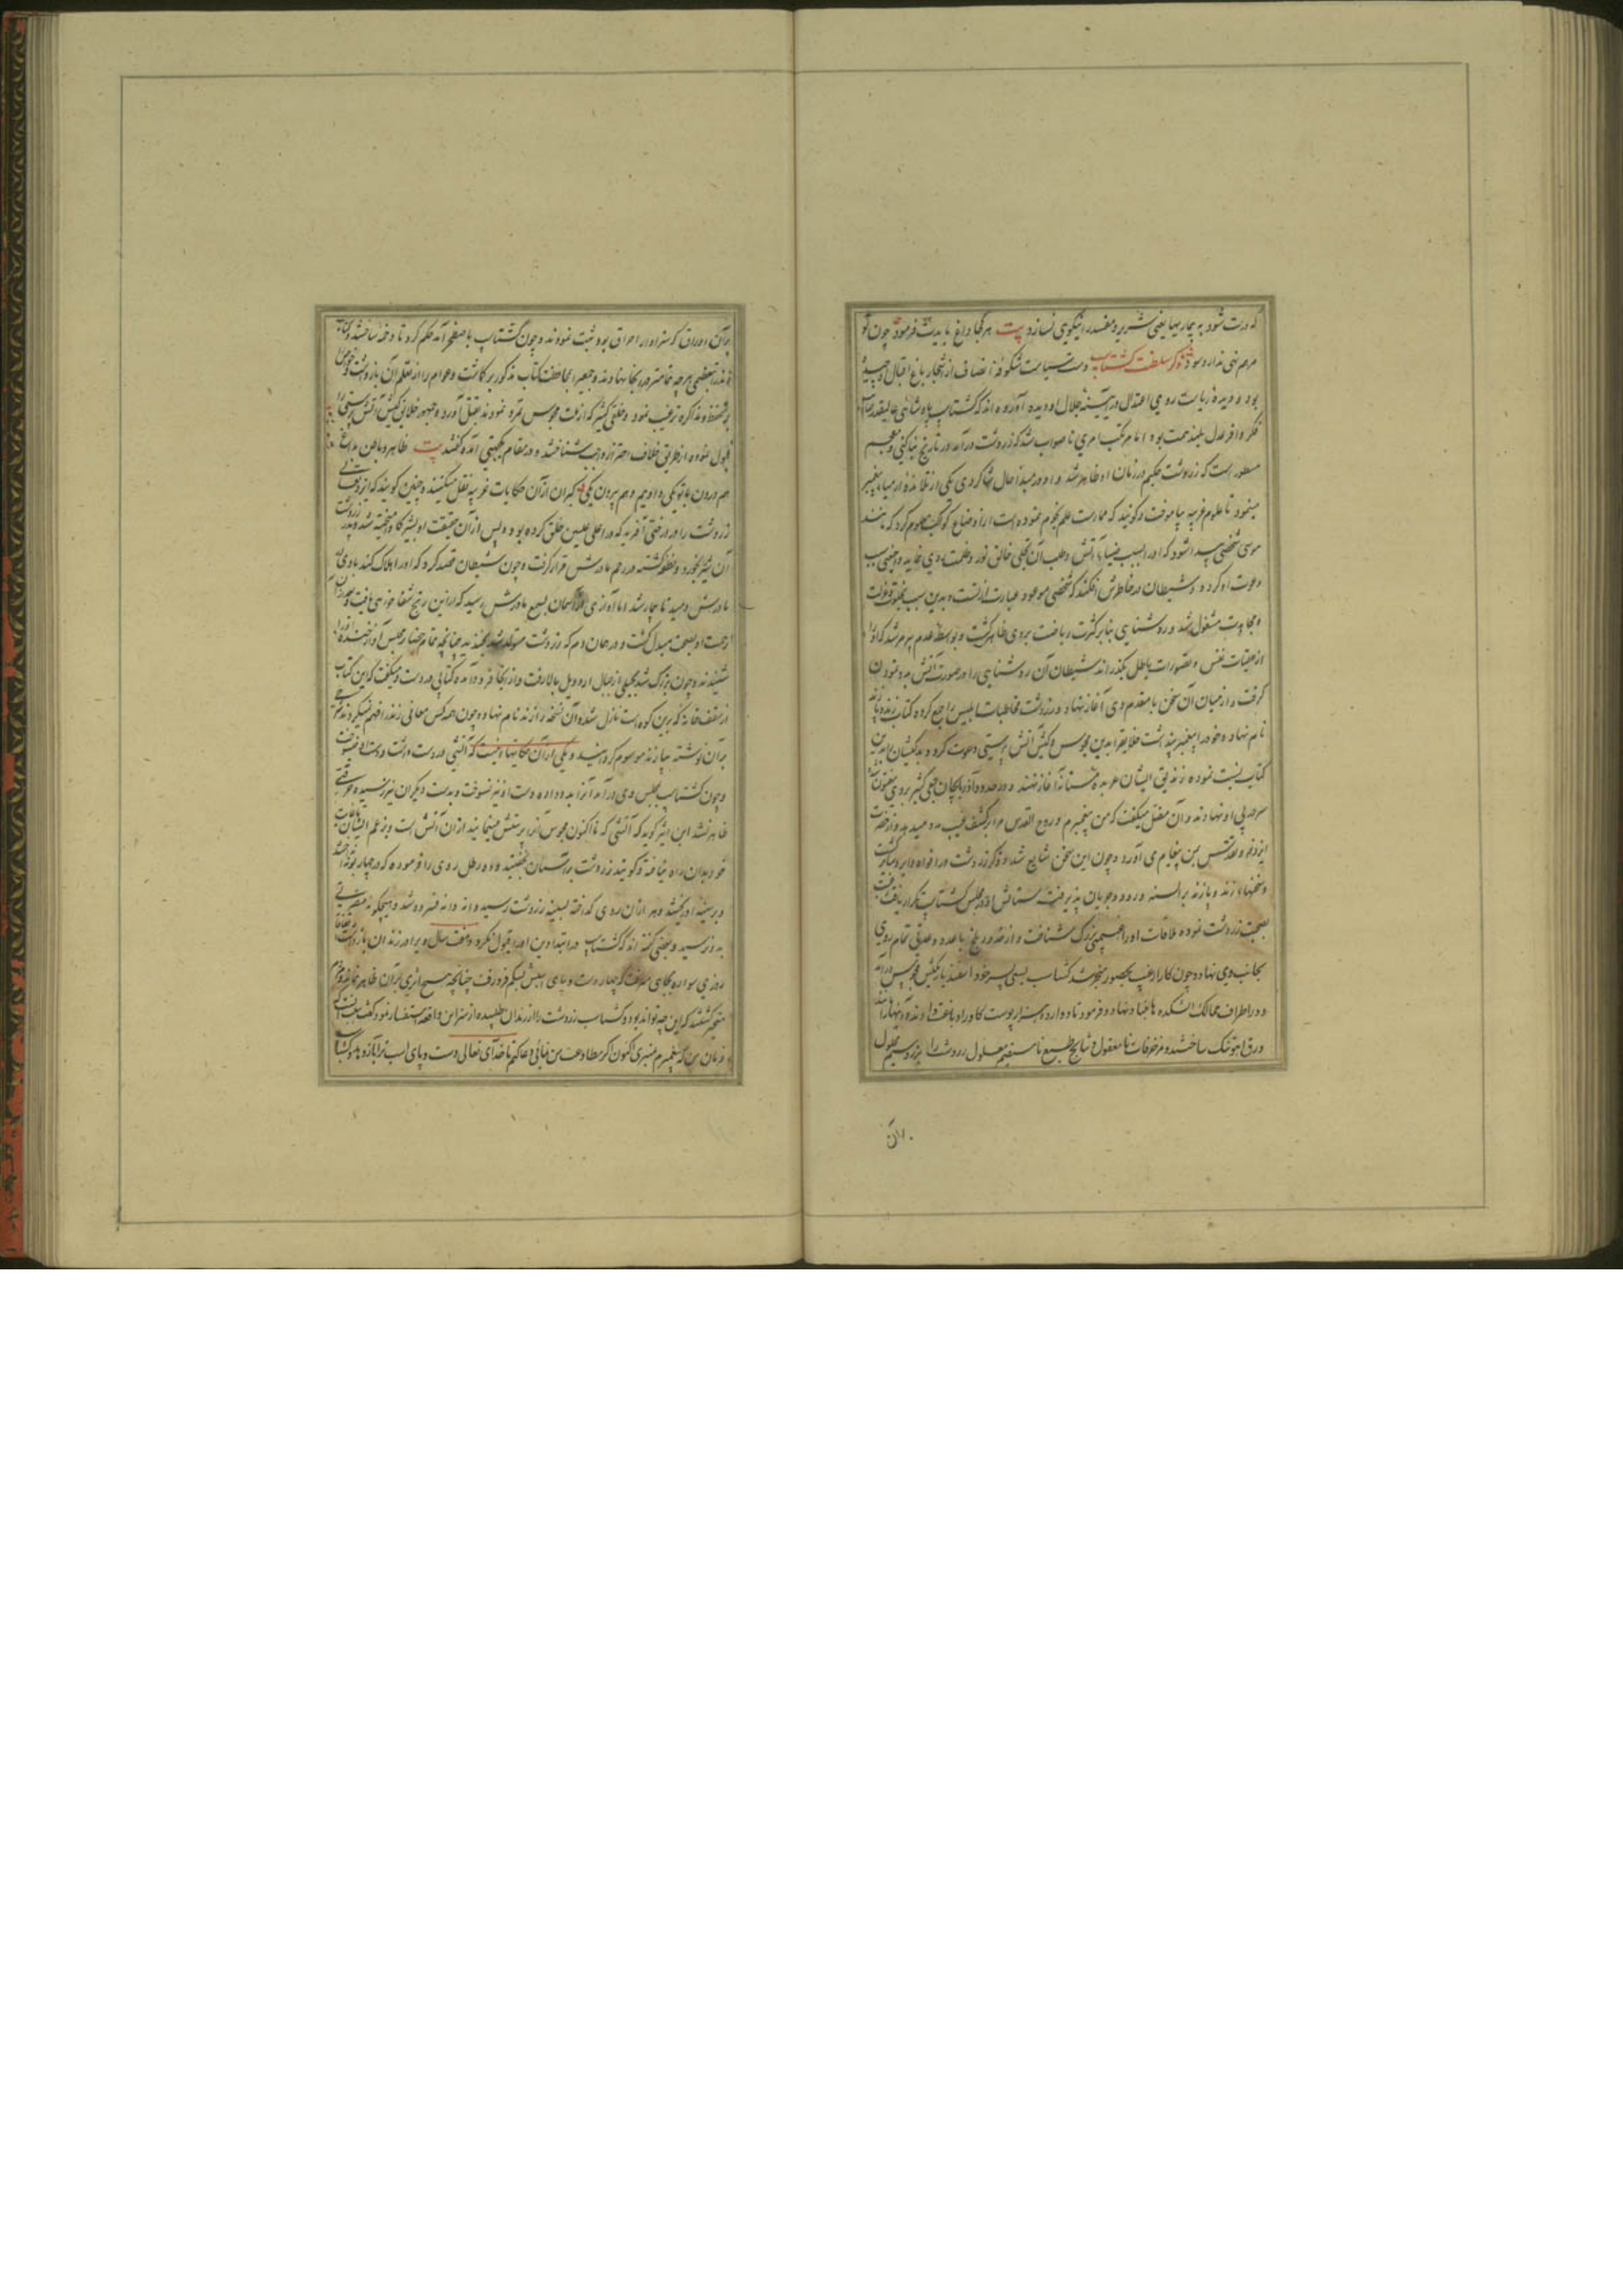 که درست شود به بیماریها یعنی شریر و مفسد را نیکوی نسازد بیت هر کجا داغ بایدت فرمود چون تو
مرهم نهی ندارد سود ذکر سلطنت گشتاسب دست سیاست شکوفه انصاف از اشجار باغ اقبال او چیده
بود و دیده ریاست روی اعتدال در آیینه جلال او دیده آورده اند که گشتاسب پادشاهی عالیقدر
فکر وافر عدل بلند همت بود اما مرتکب امری ناصواب شد که زردشت درآمد در تاریخ بناکتی و معجم
مسطور است که زردشت حکیم در زمان او ظاهر شد و او در مبدأ حال شاگردی یکی از تلامذه ارمیاء پیغمبر
مینمود تا علوم غریبه بیاموخت و گویند که ممارست علم نجوم نموده است از اوضاع کواکب معلوم کرد که مانند
موسی شخصی پیدا شود که او را بسبب ضیاء آتش و طلب آن تجلی خالق نور و ظلمت روی نماید و اجنبی سبب
دعوت او گردد و شیطان در خاطرش افکند که شخصی موعود عبارت از تست و بدین سبب بخلوت و عزلت
و مجاهدت مشغول شد و روشنایی بنابر کثرت ریاضت بر وی ظاهر گشت
از عقبات نفس و تصورات باطل بگذراند شیطان آن روشنایی را در صورت آتش بدو نمودن
گرفت و از میان آن سخن با مقدم وی آغاز نهاد و زردشت مخاطبات ابلیس را جمع کرده کتاب زند و پازند
نام نهاد و خود را پیغمبر پنداشت خلایق را بدین مجوس و کیش آتش پرستی دعوت کرد
کتاب نسبت نموده زندیق ایشان عربده مستانه آغاز نهند و در حدود آذربایجان جمعی کثیر بر وی مفتون شدند
سر در پی او نهادند و آن مقل میگفت که من پیغمبرم و روح القدس مرا بر کشف غیب مدد میدهد و از حضرت
ایزد و تقدس بمن پیغام می آورد و چون این سخن شایع شد و ذکر زردشت در افواه دایر و سایر گشت
و سخنهاء زند و پازند بر السنه ورود و جریان پذیرفت ستایش او در مجلس گشتاسب تکرار یافت
بصحبت زردشت نموده ملاقات او را غنیمتی بزرگ شناخت و از خدود بلخ با عدد و عدتی تمام روی
بجانب وی نهاد و چون کار از غیب بحضور منجر شد گشتاسب بسعی پسر خود اسفندیار بکیش مجوس درآمد
و در اطراف ممالک آتشکده ها بنیاد نهاد و فرمود تا دوازده هزار پوست گاو را دباغت داده و آنها را مانند
ورق آهو تنک ساختند و مزخرفات نا معقول و نتایج طبع نا مستقیم معلول زردشت را بزر و سیم محلول
بر آن
بر آن اوراق که سزاوار احراق بود ثبت نمودند و چون گشتاسب باصطخر آمد حکم کرد تا دخمه ساختند و کتاب
زند را بتعظیمی هر چه تمامتر در آنجا نهادند و جمعی را بمحافظت کتاب مذکور بر گماشت و عوام را از تعلم آن بازداشت و خواص را
بر تحفظ و مذاکره ترغیب نمود و خلقی کثیر که از ملت مجوس تمرد نمودند بقتل آورد و جمهور خلایق کیش آتش پرستی را
قبول نموده از طریق خلاف احتراز واجب شناختند و در مقام یکجهتی آمده گفتند بیت ظاهر و باطن
هم درون با تو یکی داریم و هم بیرون یکی گبران از آن حکایات غریبه نقل میکنند و چنین گویند که ایزد تعالی
زردشت را در درختی آفرید که در اعلی علیین خلق کرده بود و پس از آن حقیقت او بشیر گاو آمیخته شد و پدر زردشت
آن شیر بخورد و نطفه گشته در رحم مادرش قرار گرفت و چون شیطان قصد کرد که او را هلاک کند بادی
بمادرش دمید تا بیمار شد اما آوازی از آسمان بسمع مادرش رسید که از این رنج شفا خواهی یافت
زحمت او بصحت مبدل گشت و در همان دم که زردشت متولد شد بخندید چنانچه تمام حضار مجلس آواز خنده او را
شنیدند و چون بزرگ شد بجبلی از جبال اردبیل بالا رفت و از آنجا فرود آمده کتابی در دست و میگفت که این کتاب
از سقف خانه که برین کوه است نازل شده آن نسخه را زند نام نهاد و چون همه کس معانی زند را فهم نمیکردند شرحی
بر آن نوشته بپازند موسوم گردانید و یکی از آن حکایتها اینست که آتشی در دست داشت و دست او نمیسوخت
و چون گشتاسب بمجلس وی درآمد آنرا بدو داده دست او نیز نسوخت و بدست دیگران نیز رسیده حرقتی
ظاهر نشد ابن اثیر گوید که آتشی که تا اکنون مجوس آنرا پرستش مینمایند از آن آتش است و بزعم ایشان
خود بدان راه نیافته و گویند زردشت بر آستان بخفتید و ده رطل روی را فرموده که در چهار بوته
و بر سینه او ریختند و هر از آن روی گداخته بسینه زردشت رسید دانه دانه فسرده شد و هیچگونه مضرتی
بدو نرسید و بعضی گفته اند که گشتاسب در ابتدا دین او را قبول نکرد و هفت سال ویرا در زندان بازداشت
روزی سواره بجایی میرفت که چهار دست و پای اسبش بشکم فرو رفت چنانچه هیچ اثری از آن ظاهر نماند
متحیر گشتند که این چه تواند بود و گشتاسب زردشت را از زندان طلبیده از سر این واقعه استفسار نمود گفت
زمان من که پیغمبرم میبری اکنون اگر مطاوعت من نمائی دعا کنم تا خدای تعالی دست و پای اسب ترا باز دهد